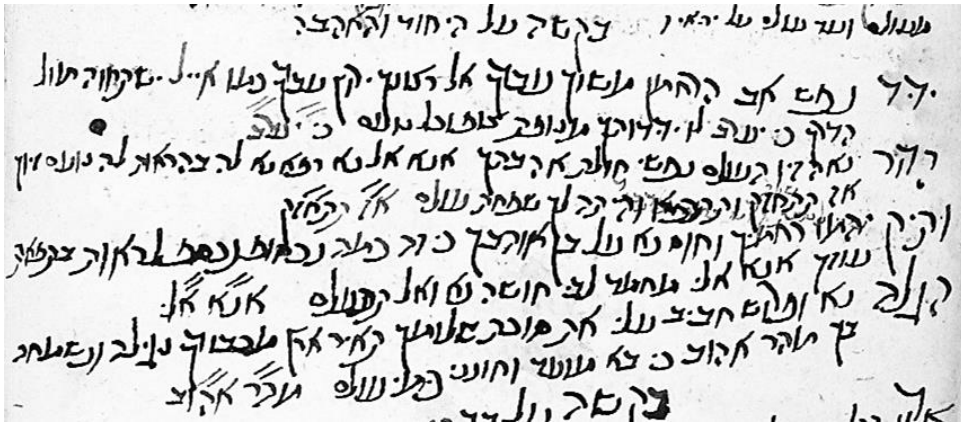 מעולם ועד עולם על יראיו בקשה על היחוד והאהבה
ידיד נפש אב הרחמן משוך עבדך אל רצונך ירוץ עבדך כמו איל ישתחוה מול
הדרך כי יערב לו ידידותך מנופת צוף וכל טעם כי יערב
הדור נאה זיו העולם נפשי חולת אהבתך אנא אל נא רפא נא לה בהראות לה נועם זיוך
אז תתחזק ותתרפא והיתה לך שפחת עולם אז תתחזק
ותיק יהמו רחמיך וחוס נא על בן אוהבך כי זה כמה נכסוף נכסף לראות בתפארת
עוזך אנא אלי מחמד לבי חושה נא ואל תתעלם אנא אלי
הגלה נא ופרוש חביב עלי את סוכת שלומך תאיר ארץ מכבודך נגילה ונשמחה
בך מהר אהוב כי בא מועד וחונני כימי עולם מהר אהוב
בקשה על